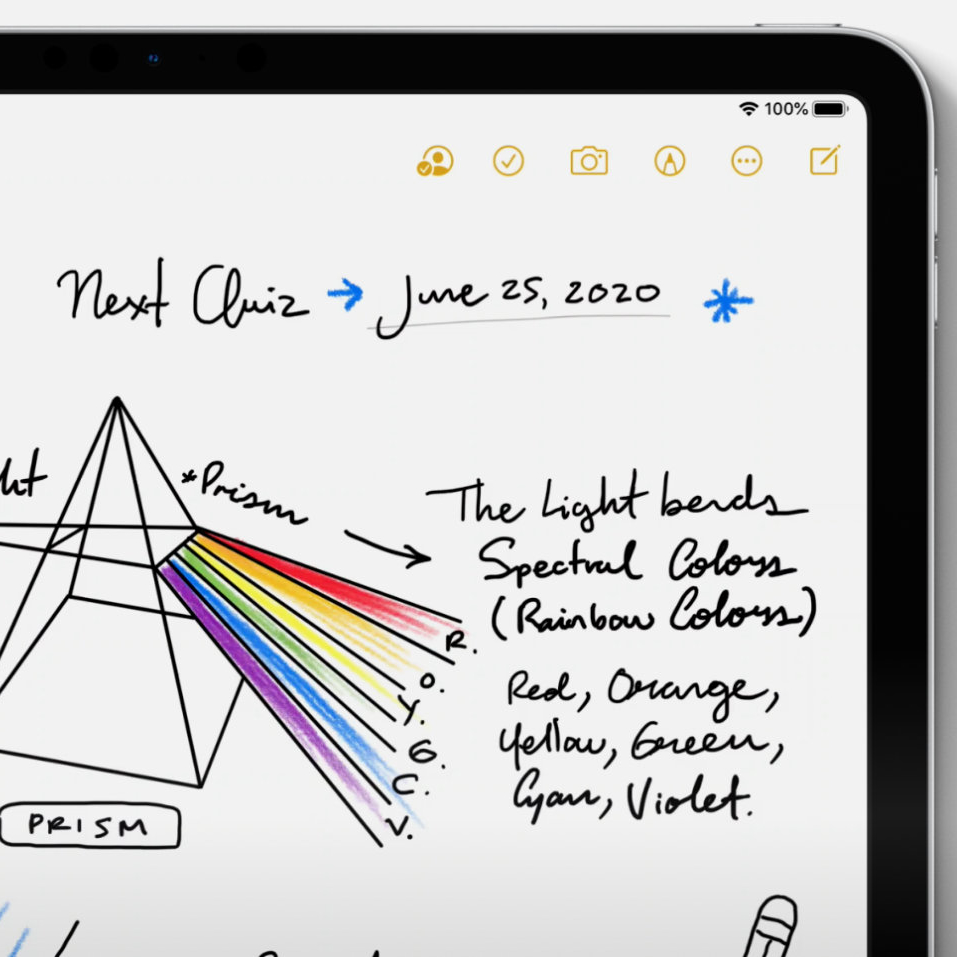 100%
Next Quiz → June 25, 2020 *
*Prism
The Light bends
Spectral Colours
(Rainbow Colours)
R.
O.
Y.
G.
C.
V.
Red, Orange,
Yellow, Green,
Cyan, Violet.
PRISM